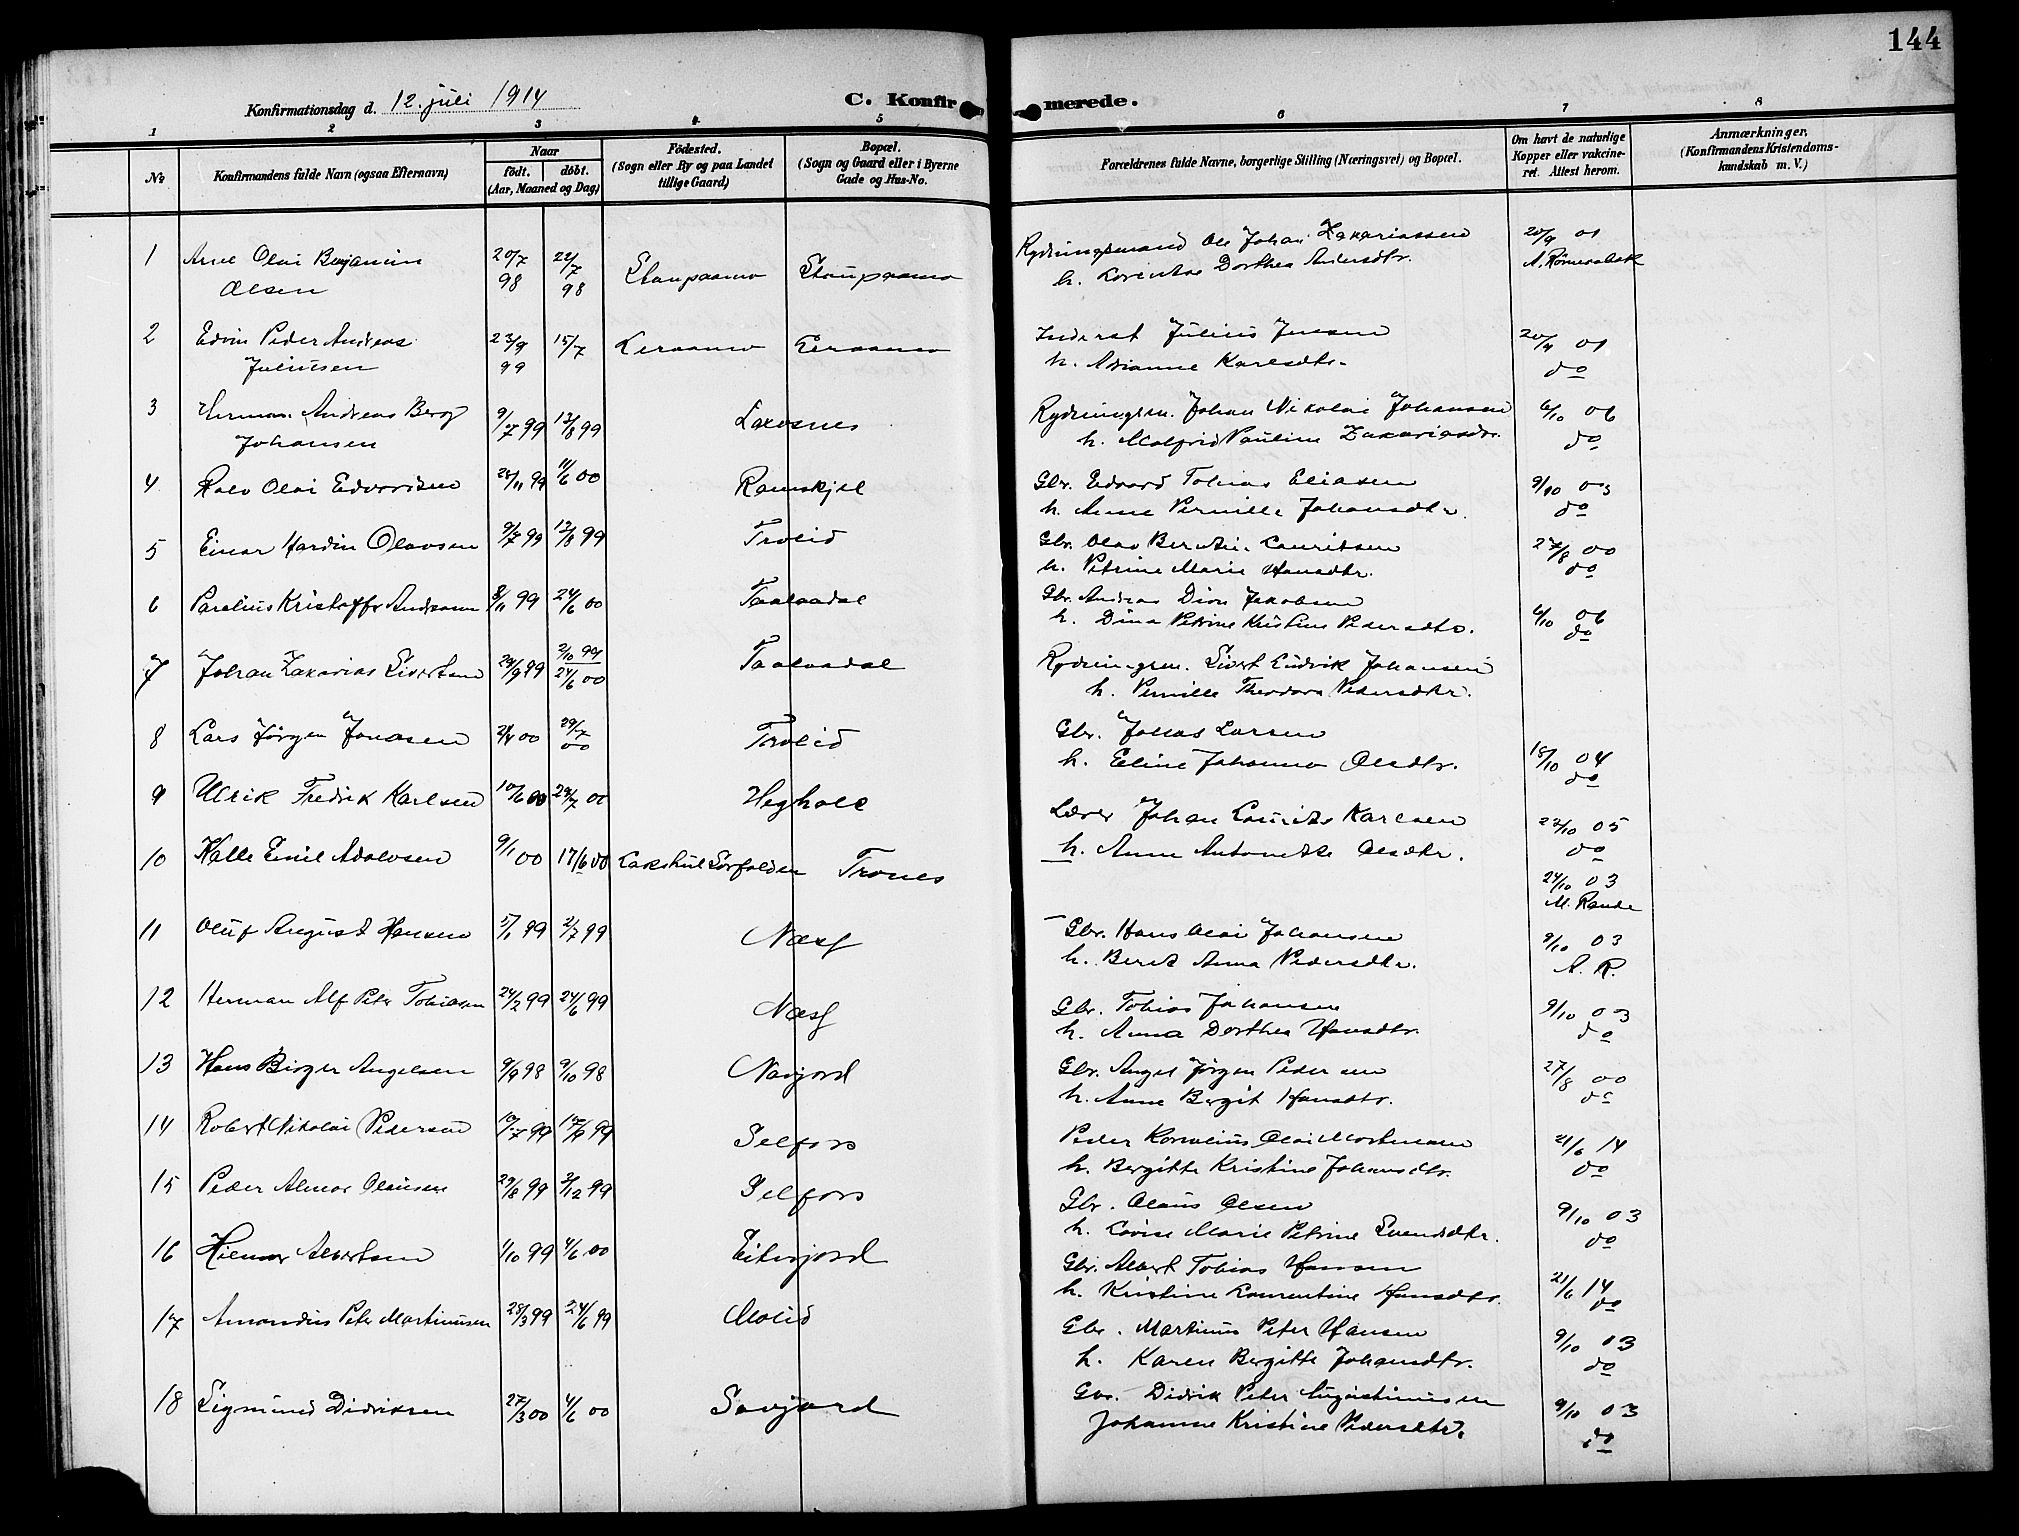 144
Konfirmationsdag d. 12. juli 1914
C. Konfirmerede.
1 2 3 4 5 6 7 8
№
Konfirmandens fulde Navn (ogsaa Efternavn)
Naar
født. døbt.
(Aar, Maaned og Dag)
Fødested.
(Sogn eller By og paa Landet
tillige Gaard)
Bopæl.
(Sogn og Gaard eller i Byerne
Gade og Hus-No.
Forældrenes fulde Navne, borgerlige Stilling (Næringsvei) og Bopæl.
Om havt de naturlige
Kopper eller vakcine-
ret. Attest herom.
Anmærkninger.
(Konfirmandens Kristendoms-
kundskab m. V.)
1 Arne Olai Benjamin 20/7 22/7 Rydningsmand Ole Johan Zakariassen 20/9 01
Olsen 98 98 Staupaamo Staupaamo h. Dorthea Andersdtr.
2 Edvin Peder Andreas 23/9 15/7 Leraamo Leraamo Inderst Julius Jensen 20/9 01
Juliusen 99 h. Adrianne Karlsdtr. do
3 Herman Andreas Berg 9/7 99 13/8 99 Laxosnes Rydningsm. Johan Nikolai Johansen 6/10 06
Johansen h. Malfrid Pauline Zakariasdtr. do
4 Rolv Olai Edvardsen 28/11 99 11/6 00 Ramskjel Gbr. Edvard Tobias Eliasen 9/10 03
h. Anne Pernille Johansdtr. do
5 Einar Hardin Olavsen 9/7 99 13/8 99 Trolid Gbr. Olav Lauritsen 27/8 00
h. Petrine Marie Hansdtr. do
6 Parelius Kristoffer Andreasen 8/11 99 24/6 00 Taalvadal Gbr. Andreas Dion Jakobsen
h. Dina Petrine Kristine Pedersdtr. 6/10 06 do
7 Johan Zakarias Sivertsen 24/9 99 2/10 99 24/6 00 Taalvadal Rydningsm. Sivert Ludvik Johansen
h. Pernille Theodora Pedersdtr.
8 Lars Jørgen Jonasen 2/4 00 29/7 00 Trolid Gbr. Jonas Larsen
h. Eline Johanna Olsdtr. 18/10 04 do
9 Ulrik Fredrik Karlsen 10/6 00 29/7 00 Heghole Lærer Johan Laurits Karlsen 22/10 05
h. Anne Antonette Olsdtr. do
10 Halle Emil Adolvsen 9/1 00 17/6 00 Lakshul Sørfolden Trones 24/10 03
M. Rande
11 Oluf August Hansen 5/1 99 2/7 99 Næsf Gbr. Hans Olai Johansen 9/10 03
h. Berit Anna Pedersdtr. A. R.
12 Herman Alf Peter Tobiasen 24/2 99 24/6 99 Næsf Gbr. Tobias Johansen 9/10 03
h. Anna Dorthea Hansdtr. do
13 Hans Birger Angelsen 9/9 98 9/10 98 Navjord Gbr. Angel Jørgen Pedersen 27/8 00
h. Anne Bergit Hansdtr. do
14 Robert Nikolai Pedersen 10/7 99 17/9 99 Selfors Peder Kornelius Olai Mortensen 21/6 14
h. Bergitte Kristine Johansdtr. do
15 Peder Almar Olausen 29/8 99 3/12 99 Selfors Gbr. Olaus Olsen 9/10 03
h. Lovise Marie Petrine Svendsdtr. do
16 Hilmar Albertsen 1/10 99 4/6 00 Eitersjord Gbr. Albert Tobias Hansen
h. Kristine Laurentine Hansdtr. 21/6 14 do
17 Amandus Peter Martinusen 28/3 99 24/6 99 Molid Gbr. Martinus Peter Hansen 9/10 03
h. Karen Bergitte Johansdtr. do
18 Sigmund Didriksen 27/3 00 4/6 00 Savjord Gbr. Didrik Peter Augustinussen 9/10 03
Johanne Kristine Pedersdtr. do